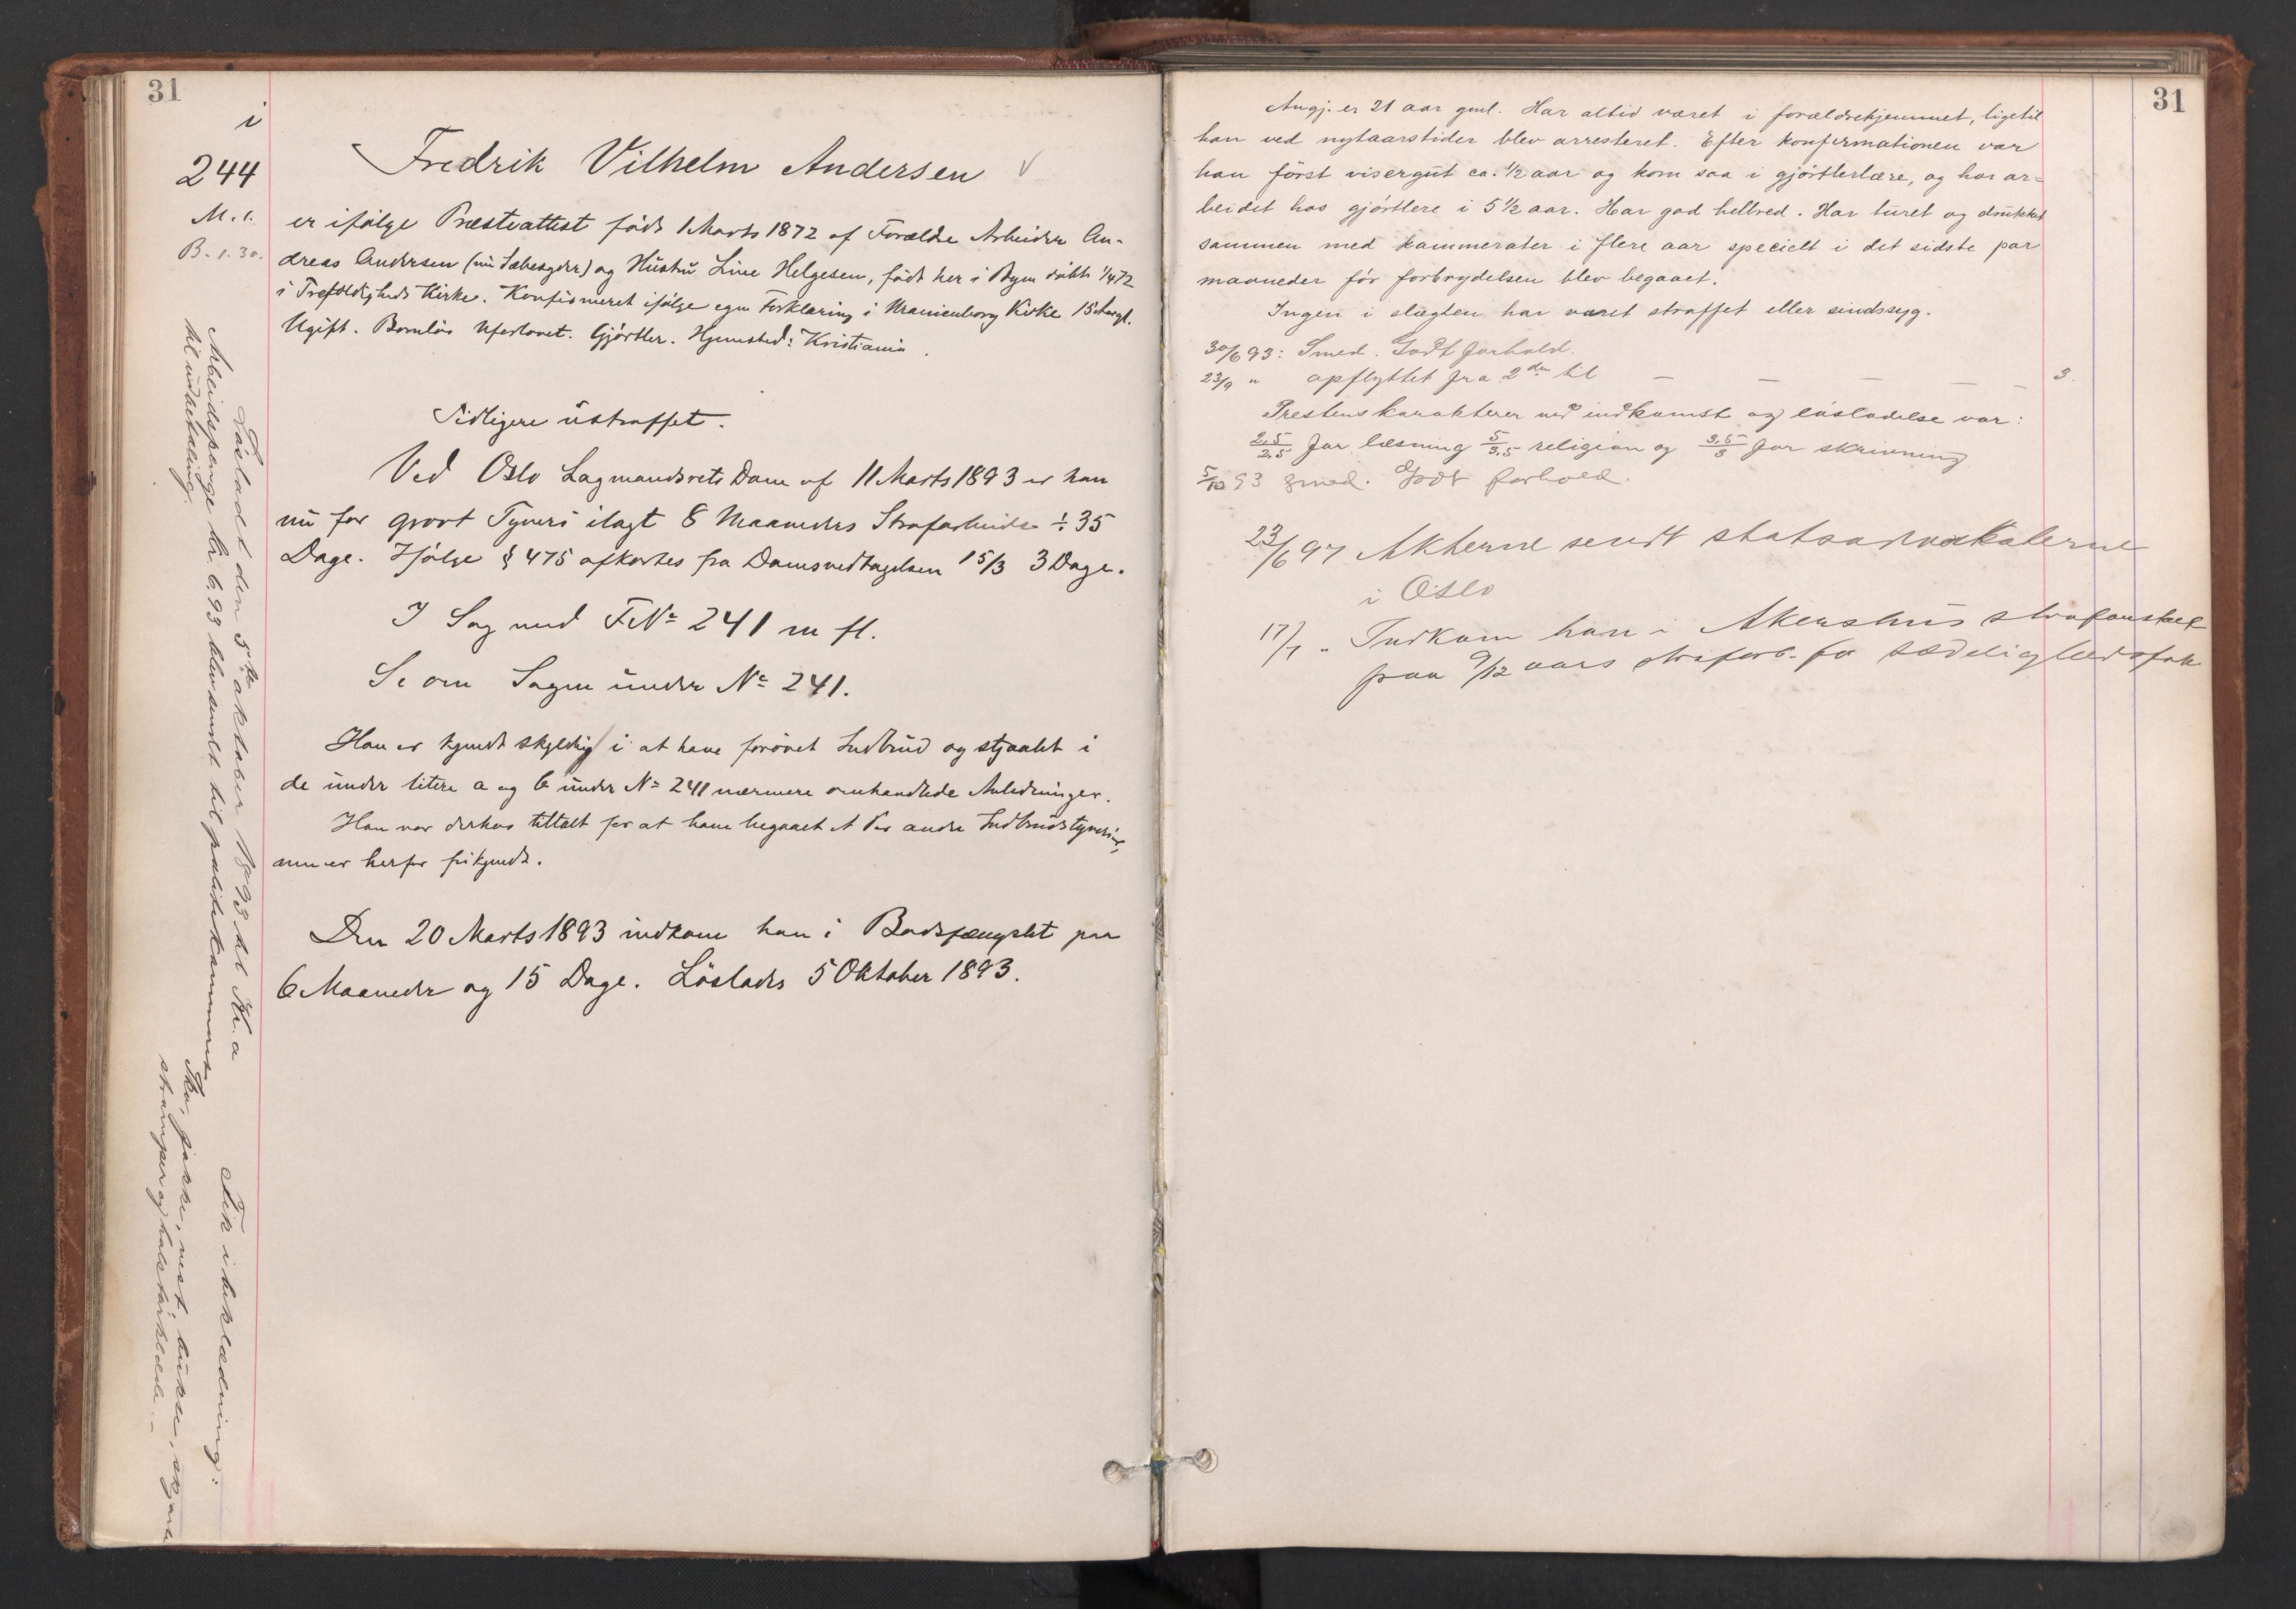 31
i
244
M. 1.
B. 1. 30.
Fredrik Vilhelm Andersen
er ifølge Præsteattest født 1 Marts 1872 af Forældre Arbeider An-
dreas Andersen (nu Sæbesyder) og Hustru Line Helgesen, født her i Byen døbt 1/4 72
i Trefoldigheds Kirke. Konfirmeret ifølge egen Forklaring i Uranienborg Kirke 15 Aar gl.
Ugift. Barnløs Uforlovet. Gjørtler. Hjemsted: Kristiania.
Tidligere ustraffet.
Ved Oslo Lagmandsrets Dom af 11 Marts 1893 er han
nu for grovt Tyveri ilagt 8 Maaneders Strafarbeide ÷ 35
Dage. Ifølge § 475 afkortes fra Domsvedtagelsen 15/3 3 Dage.
I Sag med F№ 241 m fl.
Se om Sagen under № 241.
Han er kjendt skyldig i at have forøvet Indbrud og stjaalet i
de under litera a og b under № 241 nærmere omhandlede Anledninger.
Han var derhos tiltalt for at have begaaet et Par andre Indbrudstyverier,
men er herfor frikjendt.
Den 20 Marts 1893 indkom han i Bodsfængslet paa
6 Maaneder og 15 Dage. Løslades 5 Oktober 1893.
Løsladt den 5te oktober 1893 til Kr.a
Arbeidspenge kr. 6,93 blev sendt til politikammeret
til udbetaling.
Fik i beklædning:
Sko, jakke, vest, bukse, skjorte
strømper og halstørklæde. -
31
Angj. er 21 aar gml. Har altid været i forældrehjemmet, ligetil
han ved nytaarstider blev arresteret. Efter konfirmationen var
han først visergut ca. 1/2 aar og kom saa i gjørtlerlære, og har ar=
beidet hos gjørtlere i 5 1/2 aar. Har god helbred. Har turet og drukket
sammen med kammerater i flere aar specielt i det sidste par
maaneder før forbrydelsen blev begaaet.
Ingen i slægten har været straffet eller sindssyg.
30/6 93: Smed. Godt forhold.
23/9 " opflyttet fra 2den til — — — — — 3.
Prestens karakterer ved indkomst og løsladelse var:
2,5/2,5 for læsning 5/3,5 religion og 3,5/3 for skrivning
5/10 93 smed. Godt forhold.
23/6 97 Akterne sendt statsadvokaterne
i Oslo
17/7 " Indkom han i Akershus strafanstalt
paa 9/12 aars strafarb. for sædelighedsforb.